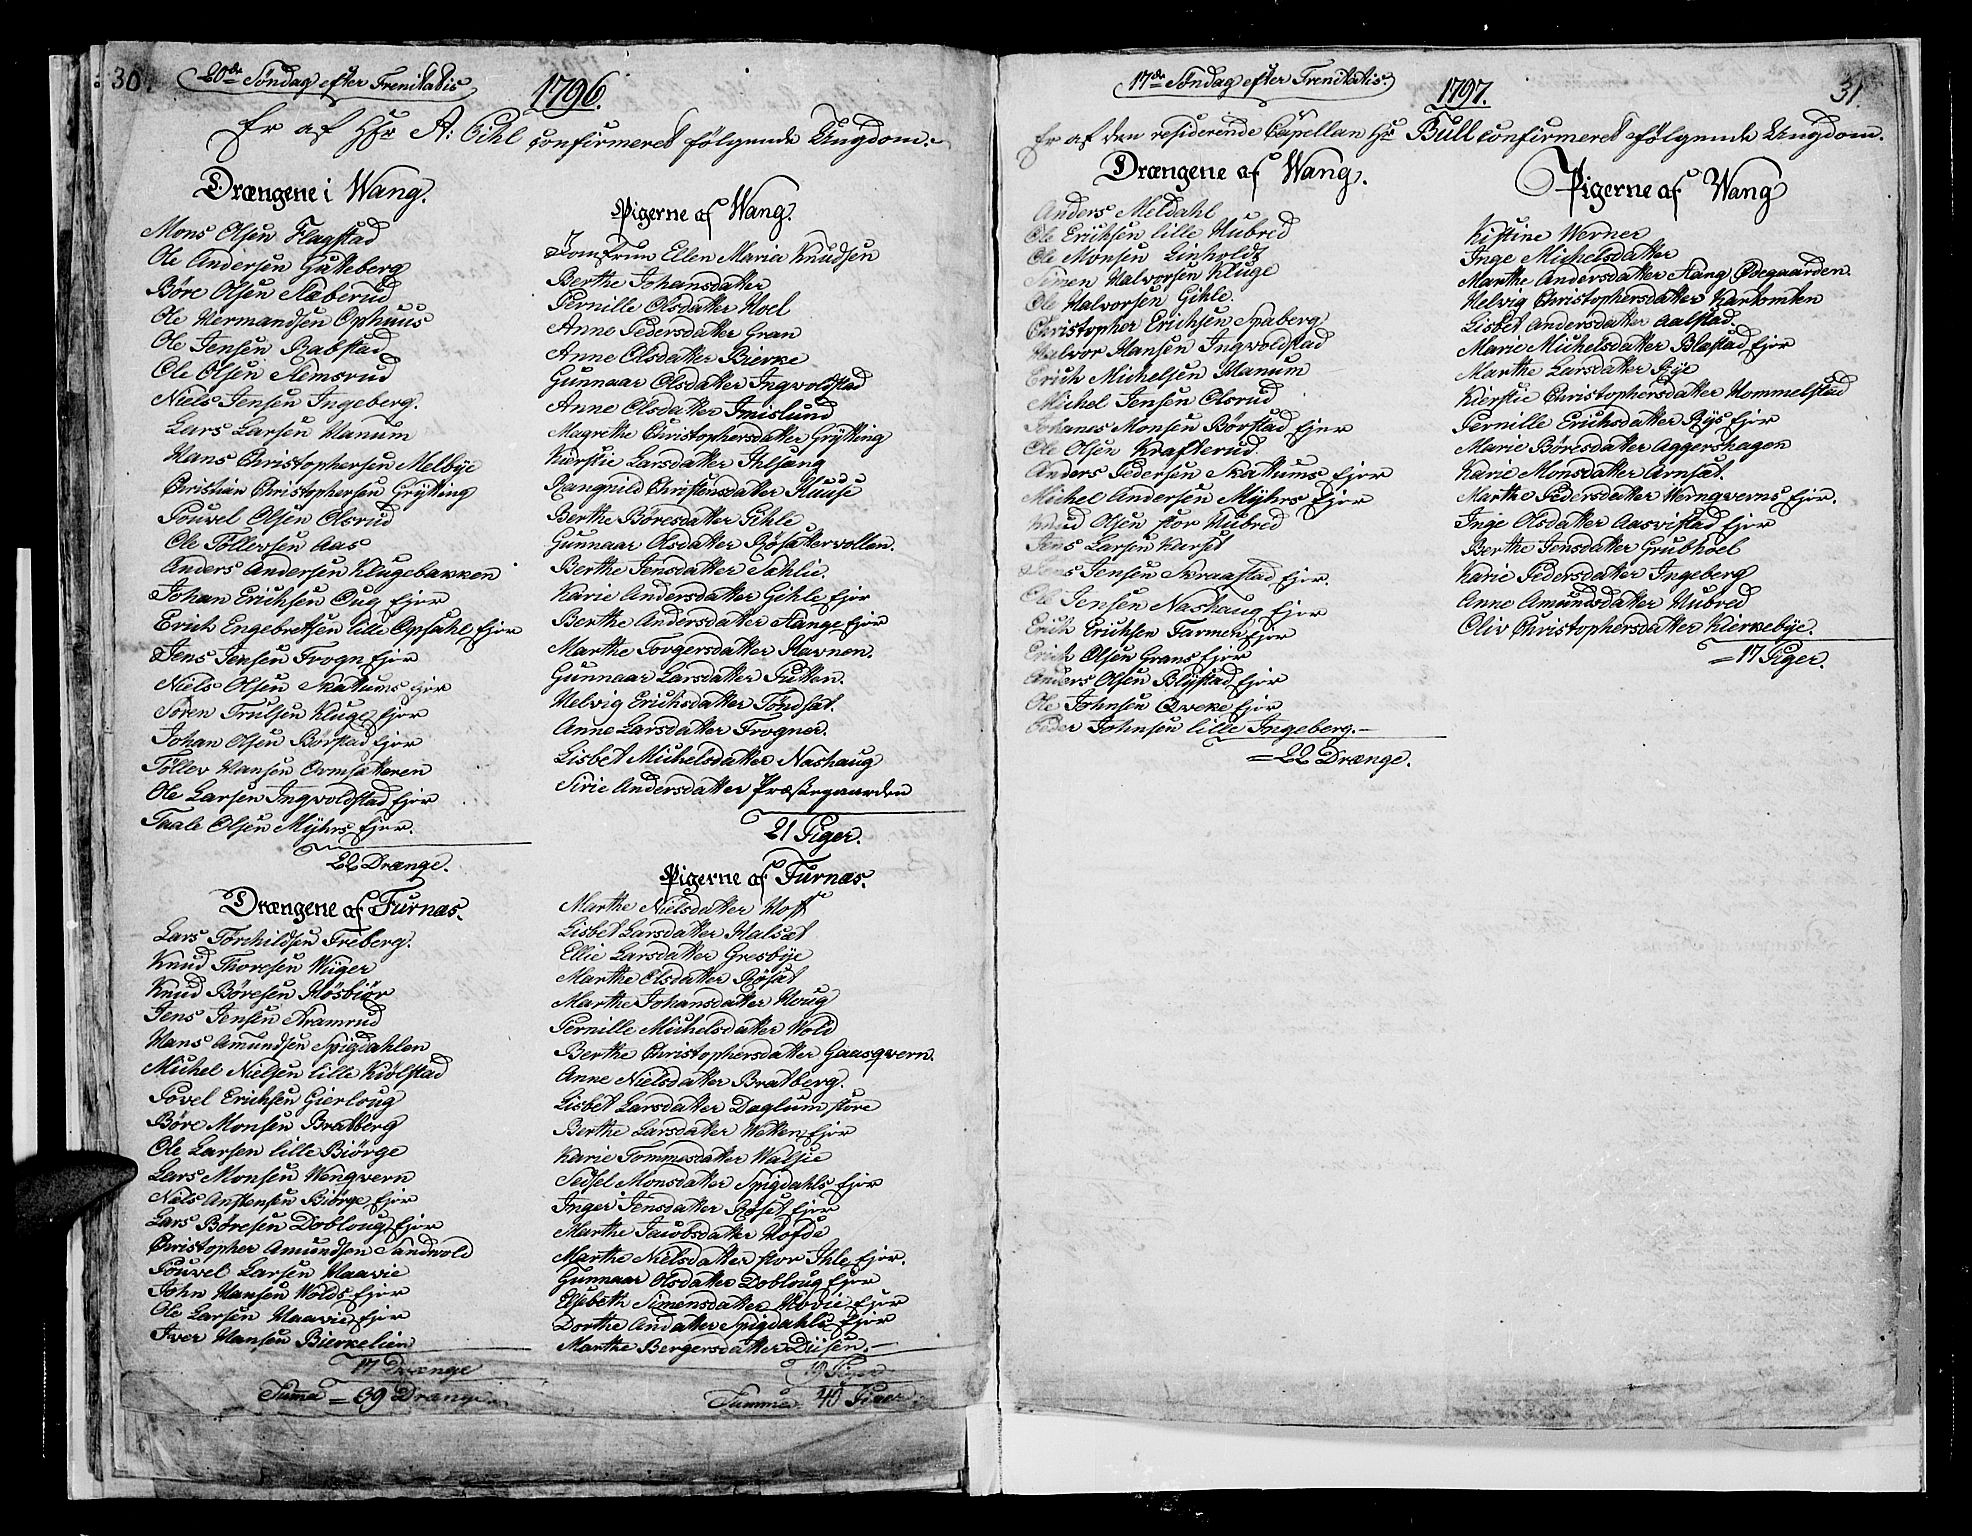 30.
20de Søndag efter Trenitatis
1796.
Er af Hr A: Pihl confirmeret følgende Ungdom.
Drængene i Wang.
Mons Olsen Flagstad
Ole Andersen Guteberg
Børe Olsen Staberud
Ole Hermandsen Ophuus
Ole Jensen Rabstad
Ole Olsen Stemsrud
Niels Jensen Ingeberg.
Lars Larsen Hanum
Hans Christophersen Melbÿe
Christian Christophersen Grÿtting
Pouvel Olsen Olsrud
Ole Tøllevsen Aas
Anders Andersen Klugebakken
Johan Erichsen Oug Ejer
Erich Engebretsen lille Opsahl Ejer
Jens Jensen Frogn Ejer
Niels Olsen Skattums Ejer
Søren Trulsen Kluge Ejer
Johan Olsen Børstad Ejer
Tøllev Hansen Ormsætteren
Ole Larsen Ingvoldstad Ejer
Taale Olsen Mÿhrs Ejer.
22 Drænge.
Drængene af Furnæs.
Lars Torchildsen Freberg.
Knud Thoresen Wiiger
Knud Børesen Høsbiør
Jens Jensen Stramrud
Hans Amundsen Spigdahlen
Michel Nielsen lille Kiølstad
Povel Erichsen Gierloug
Børe Monsen Bratberg
Ole Larsen lille Biørge
Lars Monsen Wengvern
Niels Anstensen Biørge Ejer
Lars Børesen Dobloug Ejer
Christopher Amundsen Sandvold
Pouvel Larsen Haavie
John Hansen Wolds Ejer
Ole Larsen Haavie Ejer
Iver Hansen Bierkelien
17 Drænge
Summa = 39 Drænge.
Pigerne af Wang.
Jomfrue Ellen Maria Knudsen
Berthe Johansdatter
Pernille Olsdatter Hoel
Anne Pedersdatter Gran
Anne Olsdatter Bierke
Gunnaar Olsdatter Ingvoldstad
Anne Olsdatter Imislund
Magrethe Christophersdatter Grÿtting
Kierstie Larsdatter Ihlsæng
Rangnild Christensdatter Huuse
Berthe Børesdatter Gihle
Gunnaar Olsdatter Røsættervollen.
Berthe Jensdatter Sahlie.
Karie Andersdatter Gihle Ejer
Berthe Andersdatter Stange Ejer
Marthe Torgersdatter Stavnen.
Gunnaar Larsdatter Putten.
Helvig Erichsdatter Tøndsæt.
Anne Larsdatter Frogner.
Lisbet Michelsdatter Nashaug
Sirie Andersdatter Præstegaarden
21 Piger.
Pigerne af Furnæs.
Marthe Nielsdatter Hoff
Lisbet Larsdatter Halsæt
Ellie Larsdatter Gresbÿe
Marthe Olsdatter Røsæt
Marthe Johansdatter Houg
Pernille Michelsdatter Wold
Berthe Christophersdatter Gaasqvern.
Anne Nielsdatter Bratberg.
Lisbet Larsdatter Daglum store
Berthe Larsdatter Wetten Ejer
Karie Tommesdatter Walsie
Sedsel Monsdatter Spigdahls Ejer
Inger Jensdatter Røset Ejer
Marthe Jacobsdatter Hofde
Marthe Nielsdatter stor Ihle Ejer.
Gunnaar Olsdatter Dobloug Ejer
Elsebeth Simensdatter Hovie Ejer
Dorthe Andatter Spigdahls Ejer
Marthe Bergersdatter Diisen.
19 Piger
Summa 40 Piger.
31.
17de Søndag efter Trenitatis.
1797.
Er af den residerende Capellan Hr Bull confirmeret følgende Ungdom.
Drængene af Wang.
Anders Meldahl
Ole Erichsen lille Hubred
Ole Monsen Linholdt
Simen Halvorsen Kluge
Ole Halvorsen Gihle.
Christopher Erichsen Spaberg
Halvor Hansen Ingvoldstad
Erich Michelsen Hanum
Michel Jensen Olsrud
Johanes Monsen Børstad Ejer
Ole Olsen Krafterud.
Anders Pedersen Skattums Ejer
Michel Andersen Mÿhrs Ejer
Knud Olsen stor Hubred
Jens Larsen Kurset
Jens Jensen Skraastad Ejer.
Ole Jensen Nashaug Ejer
Erich Erichsen Farmen Ejer
Erich Olsen Grans Ejer
Anders Olsen Blÿstad Ejer
Ole Johnsen Qveke Ejer
Peder Johnsen lille Ingeberg.
= 22 Drænge.
Pigerne af Wang
Kistine Werner
Inge Michelsdatter
Marthe Andersdatter Stang Ødegaarden.
Helvig Christophersdatter Kartomten
Lisbet Andersdatter Aalstad.
Marie Michelsdatter Blæstad Ejer
Marthe Larsdatter Rÿe
Kierstie Christophersdatter Hommelstad
Pernille Erichsdatter Rÿs Ejer
Marie Børesdatter Aggershagen
Karie Monsdatter Arnset.
Marthe Pedersdatter Hernqverns Ejer.
Inge Olsdatter Aasvistad Ejer
Berthe Jensdatter Grubhoel
Karie Pedersdatter Ingeberg
Anne Amundsdatter Hubred
Oliv Christophersdatter Kierkebÿe.
= 17 Piger.